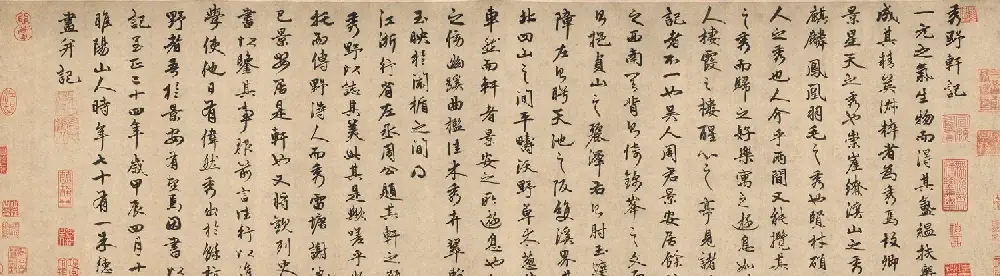 秀野軒記
一元之氣生物而得其扶輿
成其精英淑粹者為秀焉故卿
景星天之秀也崇崖繚溪山之秀
麒麟鳳凰羽毛之秀也賢材碩
人之秀也人介乎兩間又能攬其
之秀而歸之好樂寓之遊息如
人棲霞之樓醒心之亭見諸
記者不一也吳人周君景安居餘
之西南其背則倚錦峯之文石
則挹貞山之麗澤右則肘玉遮
障左則盼天池之阪雙溪界其
北四山之間平疇沃野草木葱
車而軒者景安之所遊息也
之傍幽蹊曲檻佳木秀卉翠
玉映於闌楯之間乃
江浙行省左丞周公題其軒之顏
秀野以誌其美此其是歟嗟乎
托而傳野得人而秀雷塘謝池
已景安居是軒也又將歌列史
書以鑒其事稱前言往行以進
學使他日有偉然秀出於餘杭
野者吾於景安有望焉因書以
記至正二十四年歲甲辰四月十
睢陽山人時年七十有一朱德
畫并記